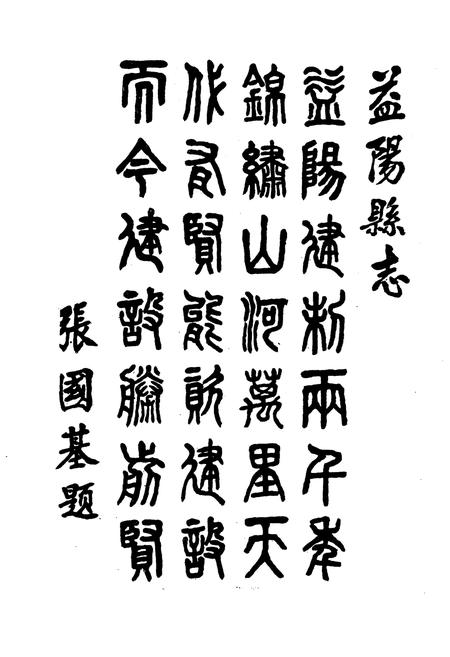 益陽縣志
益陽建制兩千年
錦繡山河萬里天
代有賢能建設
而今建設勝前賢
張國基题